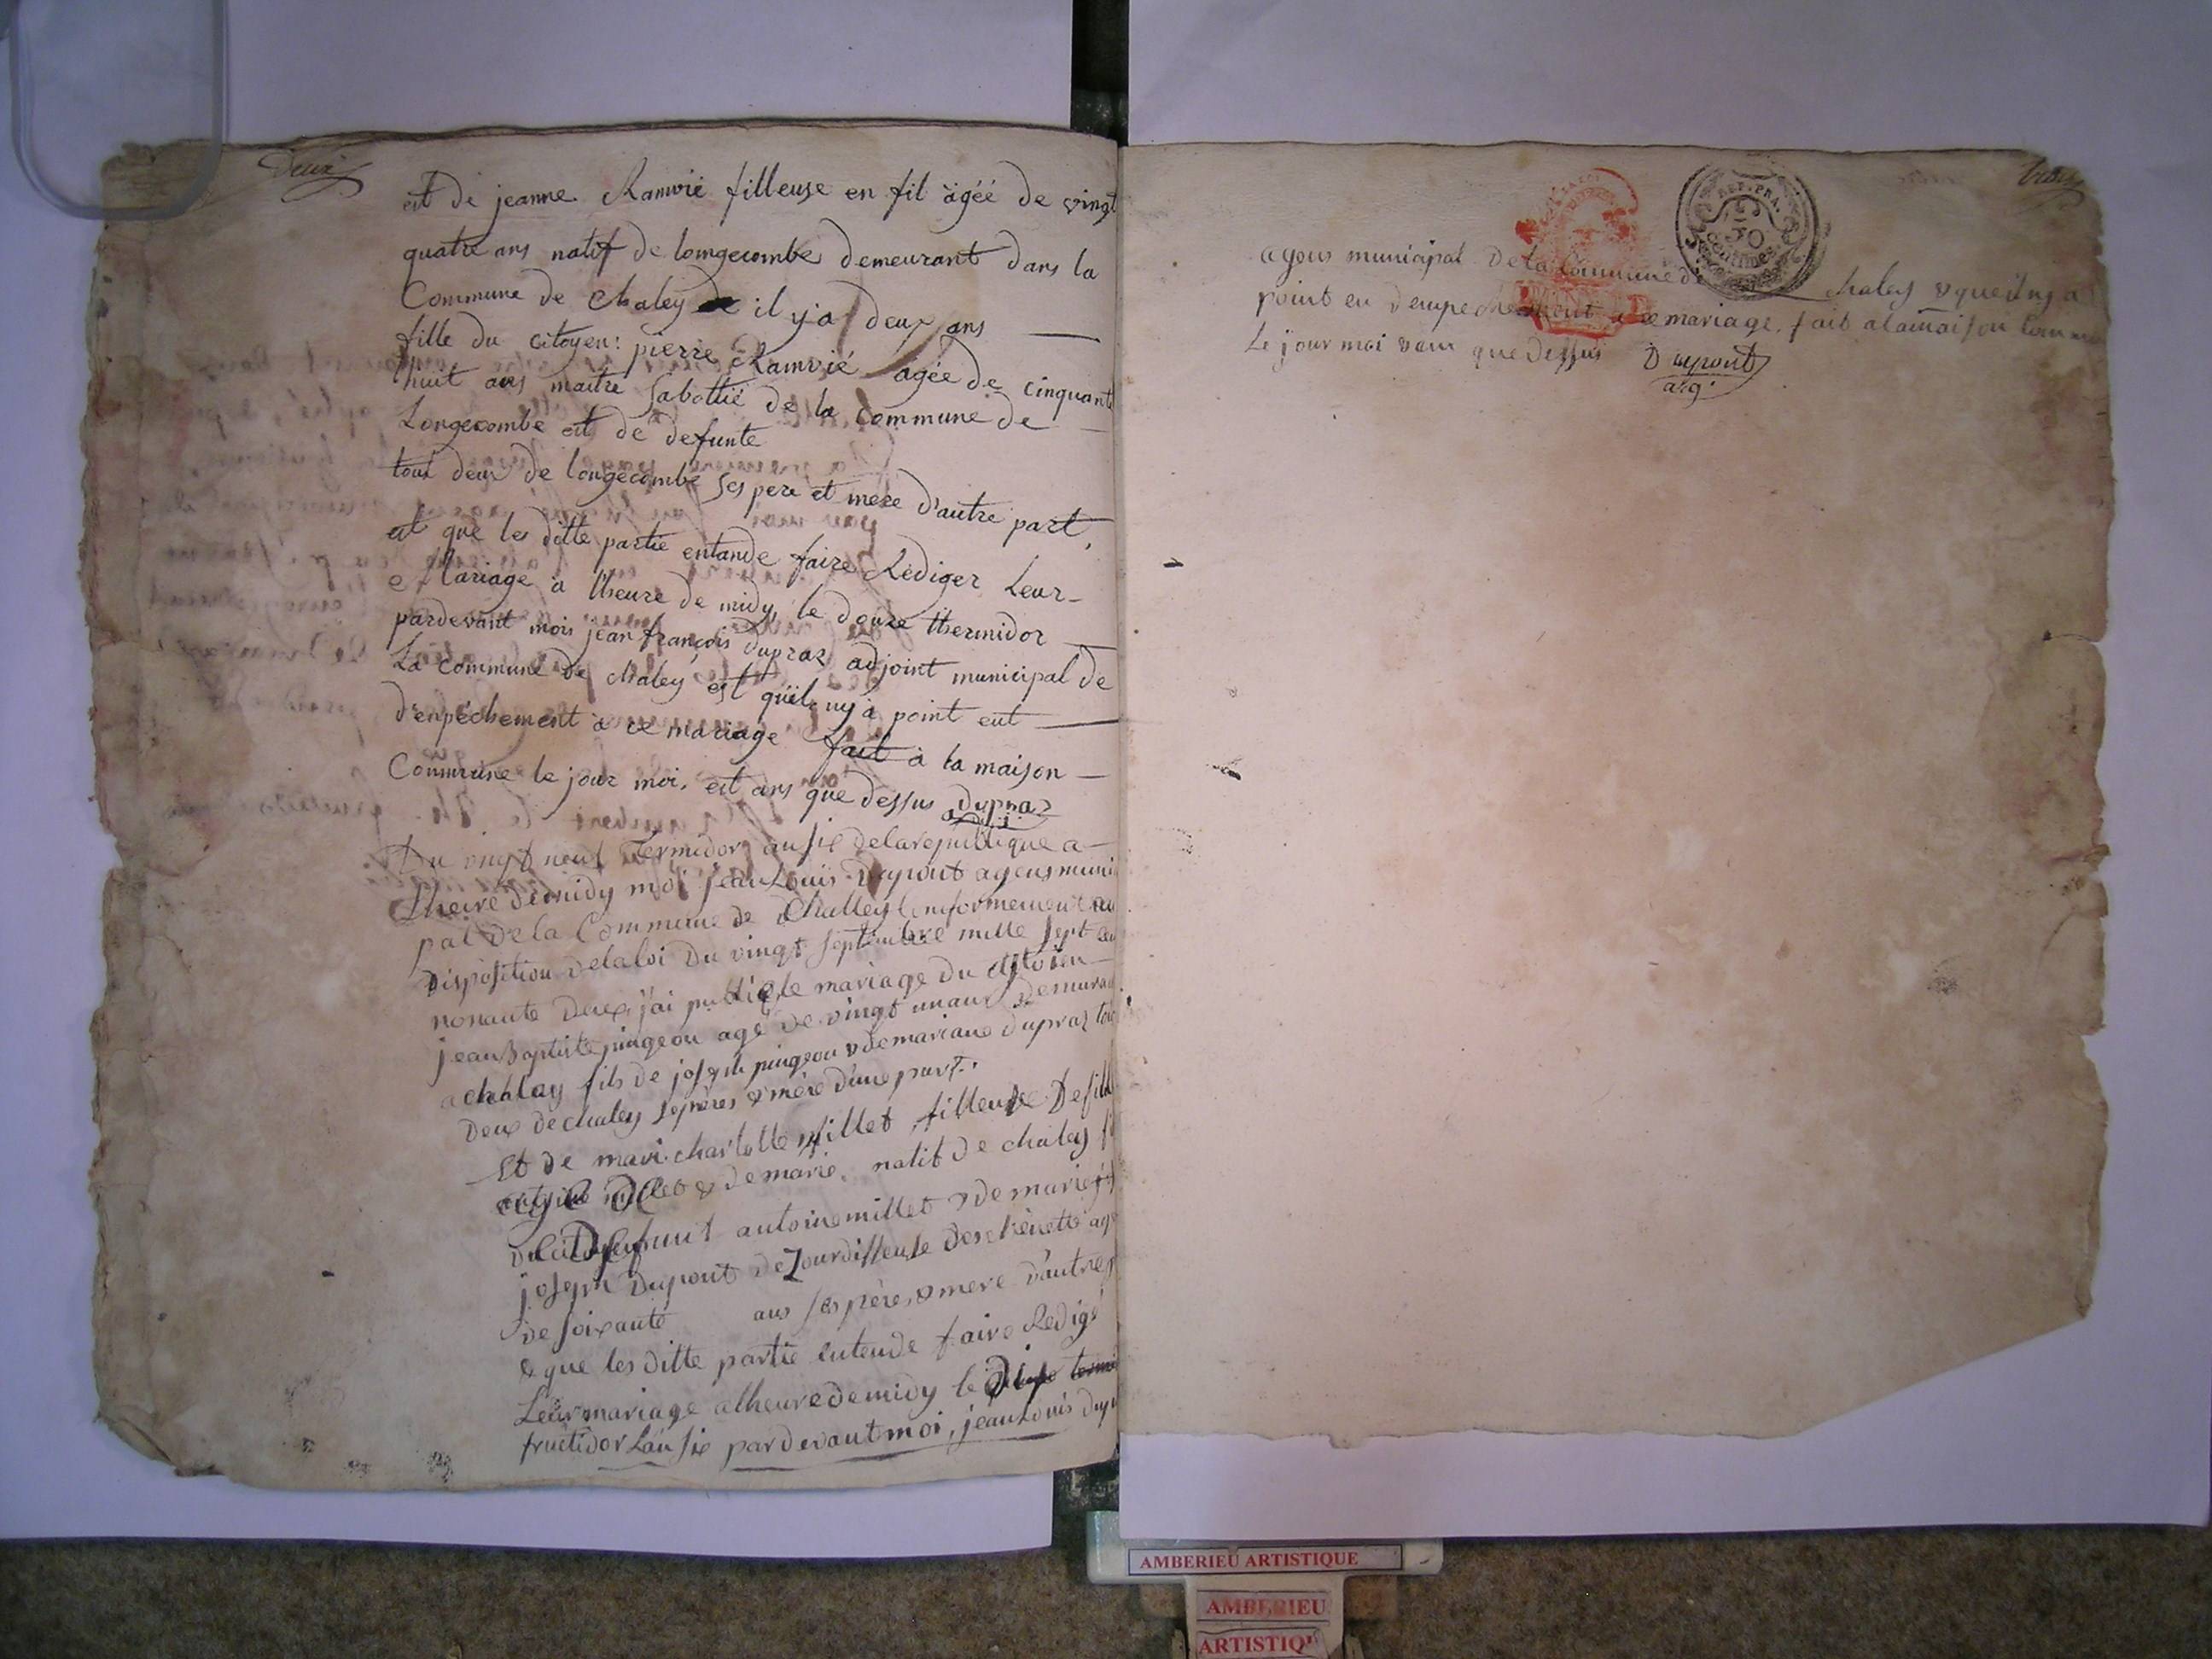 deux
est de jeanne Ramvié filleuse en fil àgéé de vingt
quatre ans natif de longecombe demeurant dans la
Commune de Chaley il y'a deux ans
fille du citoyen: pierre Ramvié agée de cinquante
huit ans maitre sabottié de la commune de
Longecombe et de defunte
tout deux de longecombe ses pere et mere d'autre part,
est que les ditte partie entande faire Rédiger Leur
Mariage à l'heure de midy, le douze thermidor
pardevant mois jean françois dupraz adjoint municipal de
La commune de chaley est quil ny à point eut
d'enpéchement à ce mariage fait à la maison
Commune le jour moi, est ans que dessus dupraz
adj
Du vingt neuf Termidor an six delarepublique a
Lheure demidy moi jean Louis Dupont agens munici
pal de la Commune de Challey Conformement au
Disposition delaloi Du vingt septembre mille sept cen
nonante Deux, j'ai publié le mariage du Citoien
jean Baptiste pingeon agé de vingt un ans demuran
a chaley fils de joseph pingeon & de mariane dupraz tou
Deux de chaley ses pères & mère d'une part.
Et de mari charlotte millet filleuse De fill
millet & de marie natif de chaley fi
defunt antoine millet & de marie
joseph Dupont
de soixante ans ses père & mere d'autre p
& que les ditte partie entende faire Redigé
Leur mariage a lheure de midy le Dix
fructidor Lan six par devant moi, jean Louis dup
trois
REP. FRA.
50
Centimes
agens municipal De la Commune de chaley & quil ny a
point eu dempechement a ce mariage, fait a la maison Commu
Le jour moi & an que dessus Dupont
ag.
AMBERIEU ARTISTIQUE
AMBERIEU
ARTISTIQU